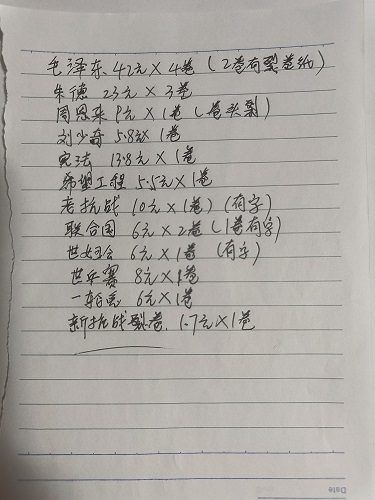 毛泽东 42元×4卷（2卷有裂卷纸）
朱德 23元×3卷
周恩来 9元×1卷（卷头裂）
刘少奇 5.8元×1卷
宪法 13.8元×1卷
希望工程 5.5元×1卷
老抗战 10元×1卷）（有字）
联合国 6元×2卷（1卷有字）
世妇会 6元×1卷（有字）
世乒赛 8元×1卷
一轮兔 6元×1卷
新抗战裂卷. 1.7元×1卷
Date